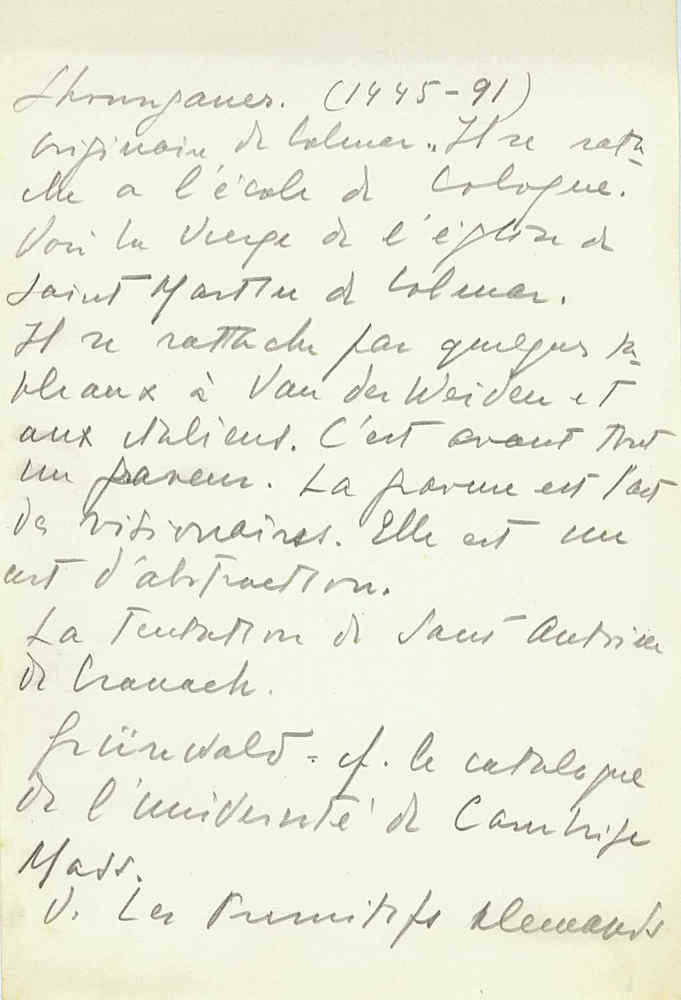 Shoungauer. (1445-91)
originaire de Colmar. Il se ratta-
che a l'école de Cologne.
Voir la Vierge de l'église de
Saint Martin de Colmar.
Il se rattache par quelques ta-
bleaux à Van der Weiden et
aux italiens. C'est avant tout
un graveur. La gravure est l'art
des visionaires. Elle est un
art d'abstraction.
La Tentation de Saint Antoine
de Cranach.
Grünewald = cf. le catalogue
de l'université de Cambrige
Mass.
V. Les Primitifs allemands